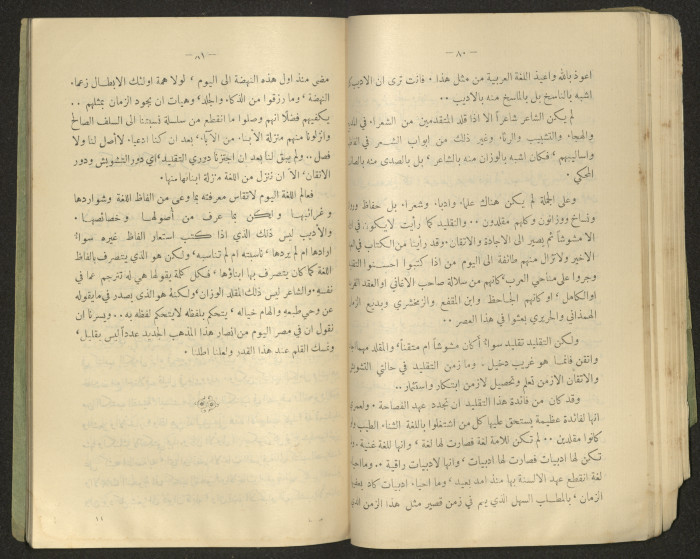 — ٨٠ —
اعوذ بالله واعيذ اللغة العربية من مثل هذا . فانت ترى ان الاديب
اشبه بالناسخ بل بالماسخ منه بالاديب ..
لم يكن الشاعر شاعراً الا اذا قلد المتقدمين من الشعراء في
والهجاء والتشبيب والرثاء وغير ذلك من ابواب الشعر في
واساليبهم ، فكان اشبه بالوزان منه بالشاعر ، بل بالصدى منه
المحكي .
وعلى الجملة لم يكن هناك علماء وادباء وشعراء بل حفاظ
ونساخ ووزانون وكلهم مقلدون .. والتقليد كما رأيت لا يكون في
الا مشوشاً ثم يصير الى الاجادة والاتقان . وقد رأينا من الكتاب في
الاخير ولا تزال منهم طائفة الى اليوم من اذا كتبوا احسنوا التقليد
وجروا على مناحي العرب كأنهم من سلالة صاحب الاغاني او العقد
او الكامل ، او كانهم الجاحظ وابن المقفع والزمخشري وبديع الزمان
الهمذاني والحريري بعثوا في هذا العصر ..
ولكن التقليد تقليد سواء أكان مشوشاً ام متقناً ، والمقلد مهما
واتقن فانما هو غريب دخيل . وما زمن التقليد في حالتي التشويش
والاتقان الا زمن تعلم وتحصيل لا زمن ابتكار واستثمار ..
وقد كان من فائدة هذا التقليد ان تجدد عهد الفصاحة .
انها لفائدة عظيمة يستحق عليها كل من اشتغلوا باللغة الثناء الطيب
كانوا مقلدين .. لم تكن للامة لغة فصارت لها لغة ، وانها للغة غنية .
تكن لها ادبيات فصارت لها ادبيات ، وانها لادبيات راقية .
لغة انقطع عهد الالسنة بها منذ امد بعيد ، وما احياء ادبيات كاد
الزمان ، بالمطلب السهل الذي يتم في زمن قصير مثل هذا الزمن
— ٨١ —
مضى منذ اول هذه النهضة الى اليوم ، لولا همة اولئك الابطال زعماء
النهضة ، وما رزقوا من الذكاء والجلد ، وهيهات ان يجود الزمان بمثلهم ..
يكفيهم فضلاً انهم وصلوا ما انقطع من سلسلة نسبتنا الى السلف الصالح
وانزلونا منهم منزلة الأبناء من الآباء ، بعد ان كنا ادعياء لا أصل لنا ولا
فصل .. ولم يبق لنا بعد ان اجتزنا دوري التقليد ، أي دور التشويش ودور
الاتقان ، الا ان ننزل من اللغة منزلة ابنائها منها .
فعالم اللغة اليوم لا تقاس معرفته بما وعى من الفاظ اللغة وشواردها
وغرائبها ولكن بما عرف من أصولها وخصائصها .
والأديب ليس ذلك الذي اذا كتب استعار الفاظ غيره سواء
ارادها ام لم يردها ، ناسبته ام لم تناسبه ، ولكن هو الذي يتصرف بالفاظ
اللغة كما كان يتصرف بها ابناؤها ، فكل كلمة يقولها هي له تترجم عما في
نفسه . والشاعر ليس ذلك المقلد الوزان ، ولكنه هو الذي يصدر في ما يقوله
عن وحي طبعه والهام خياله ، يتحكم بلفظه لا يتحكم لفظه به .. ويسرنا ان
نقول ان في مصر اليوم من انصار هذا المذهب الجديد عدداً ليس بقليل ،
ونمسك القلم عند هذا القدر ولعلنا اطلنا .
١١